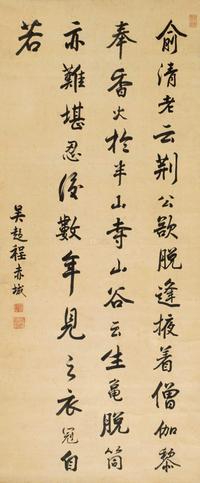 俞清老云荆公欲脱逢掖着僧伽黎
奉香火於半山寺山谷云生龜脱筒
亦難堪忍後數年見之衣冠自
若
吴趨程赤城